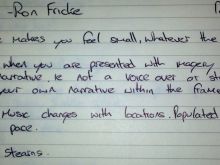 -Ron Fricke
makes you feel small, whatever the
when you are presented with imagery
narrative, ie not a voice over or st
your own narrative within the frame
Music changes with locations. Populated
pace.
Stearns.